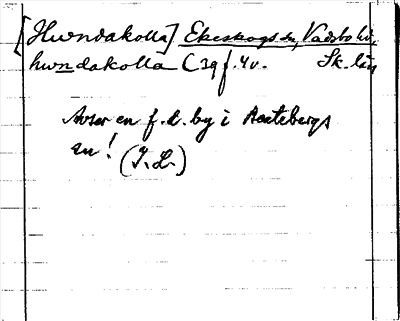 [Hwndakolla] Ekeskogs sn, Vadsbo hd,
hwndakolla C 39 f. 4v. Sk. län
Avser en f. d. by i Beatebergs
sn! (I. L.)